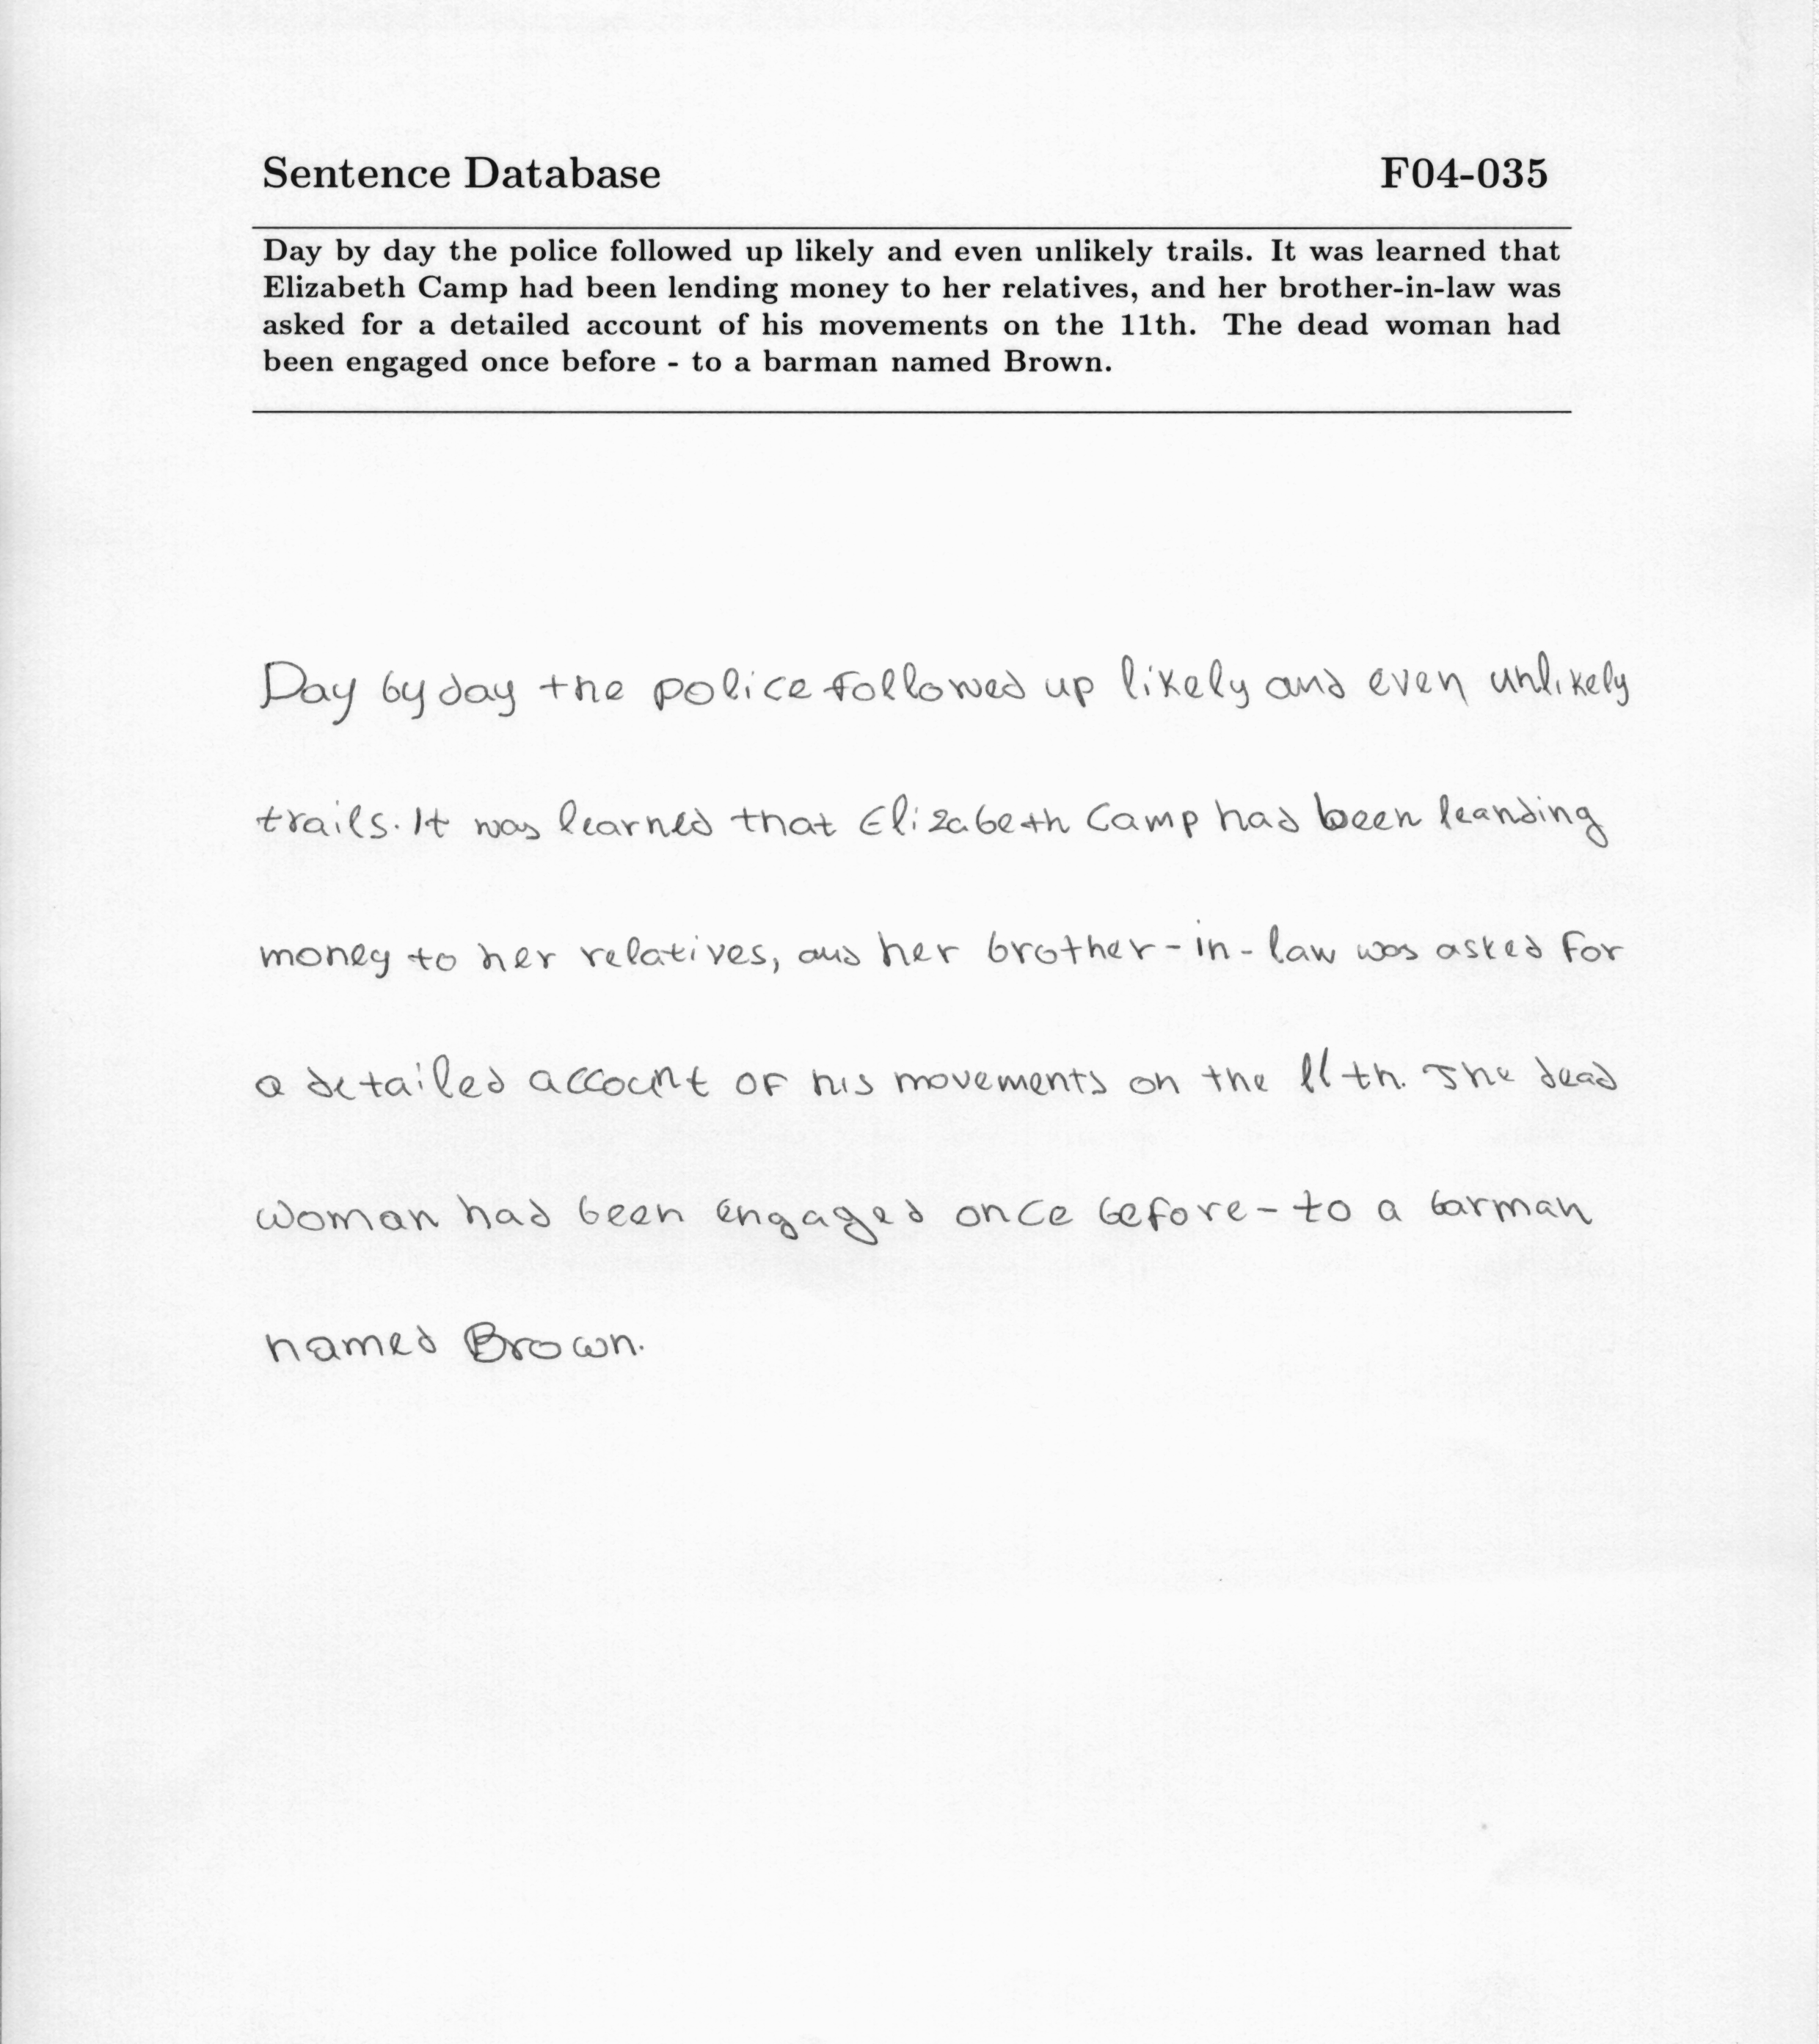 Sentence Database F04-035
Day by day the police followed up likely and even unlikely trails. It was learned that
Elizabeth Camp had been lending money to her relatives, and her brother-in-law was
asked for a detailed account of his movements on the 11th. The dead woman had
been engaged once before - to a barman named Brown.
Day by day the police followed up likely and even unlikely
trails. It was learned that Elizabeth Camp had been leanding
money to her relatives, and her brother-in-law was asked for
a detailed account of his movements on the 11th. The dead
woman had been engaged once before - to a barman
named Brown.